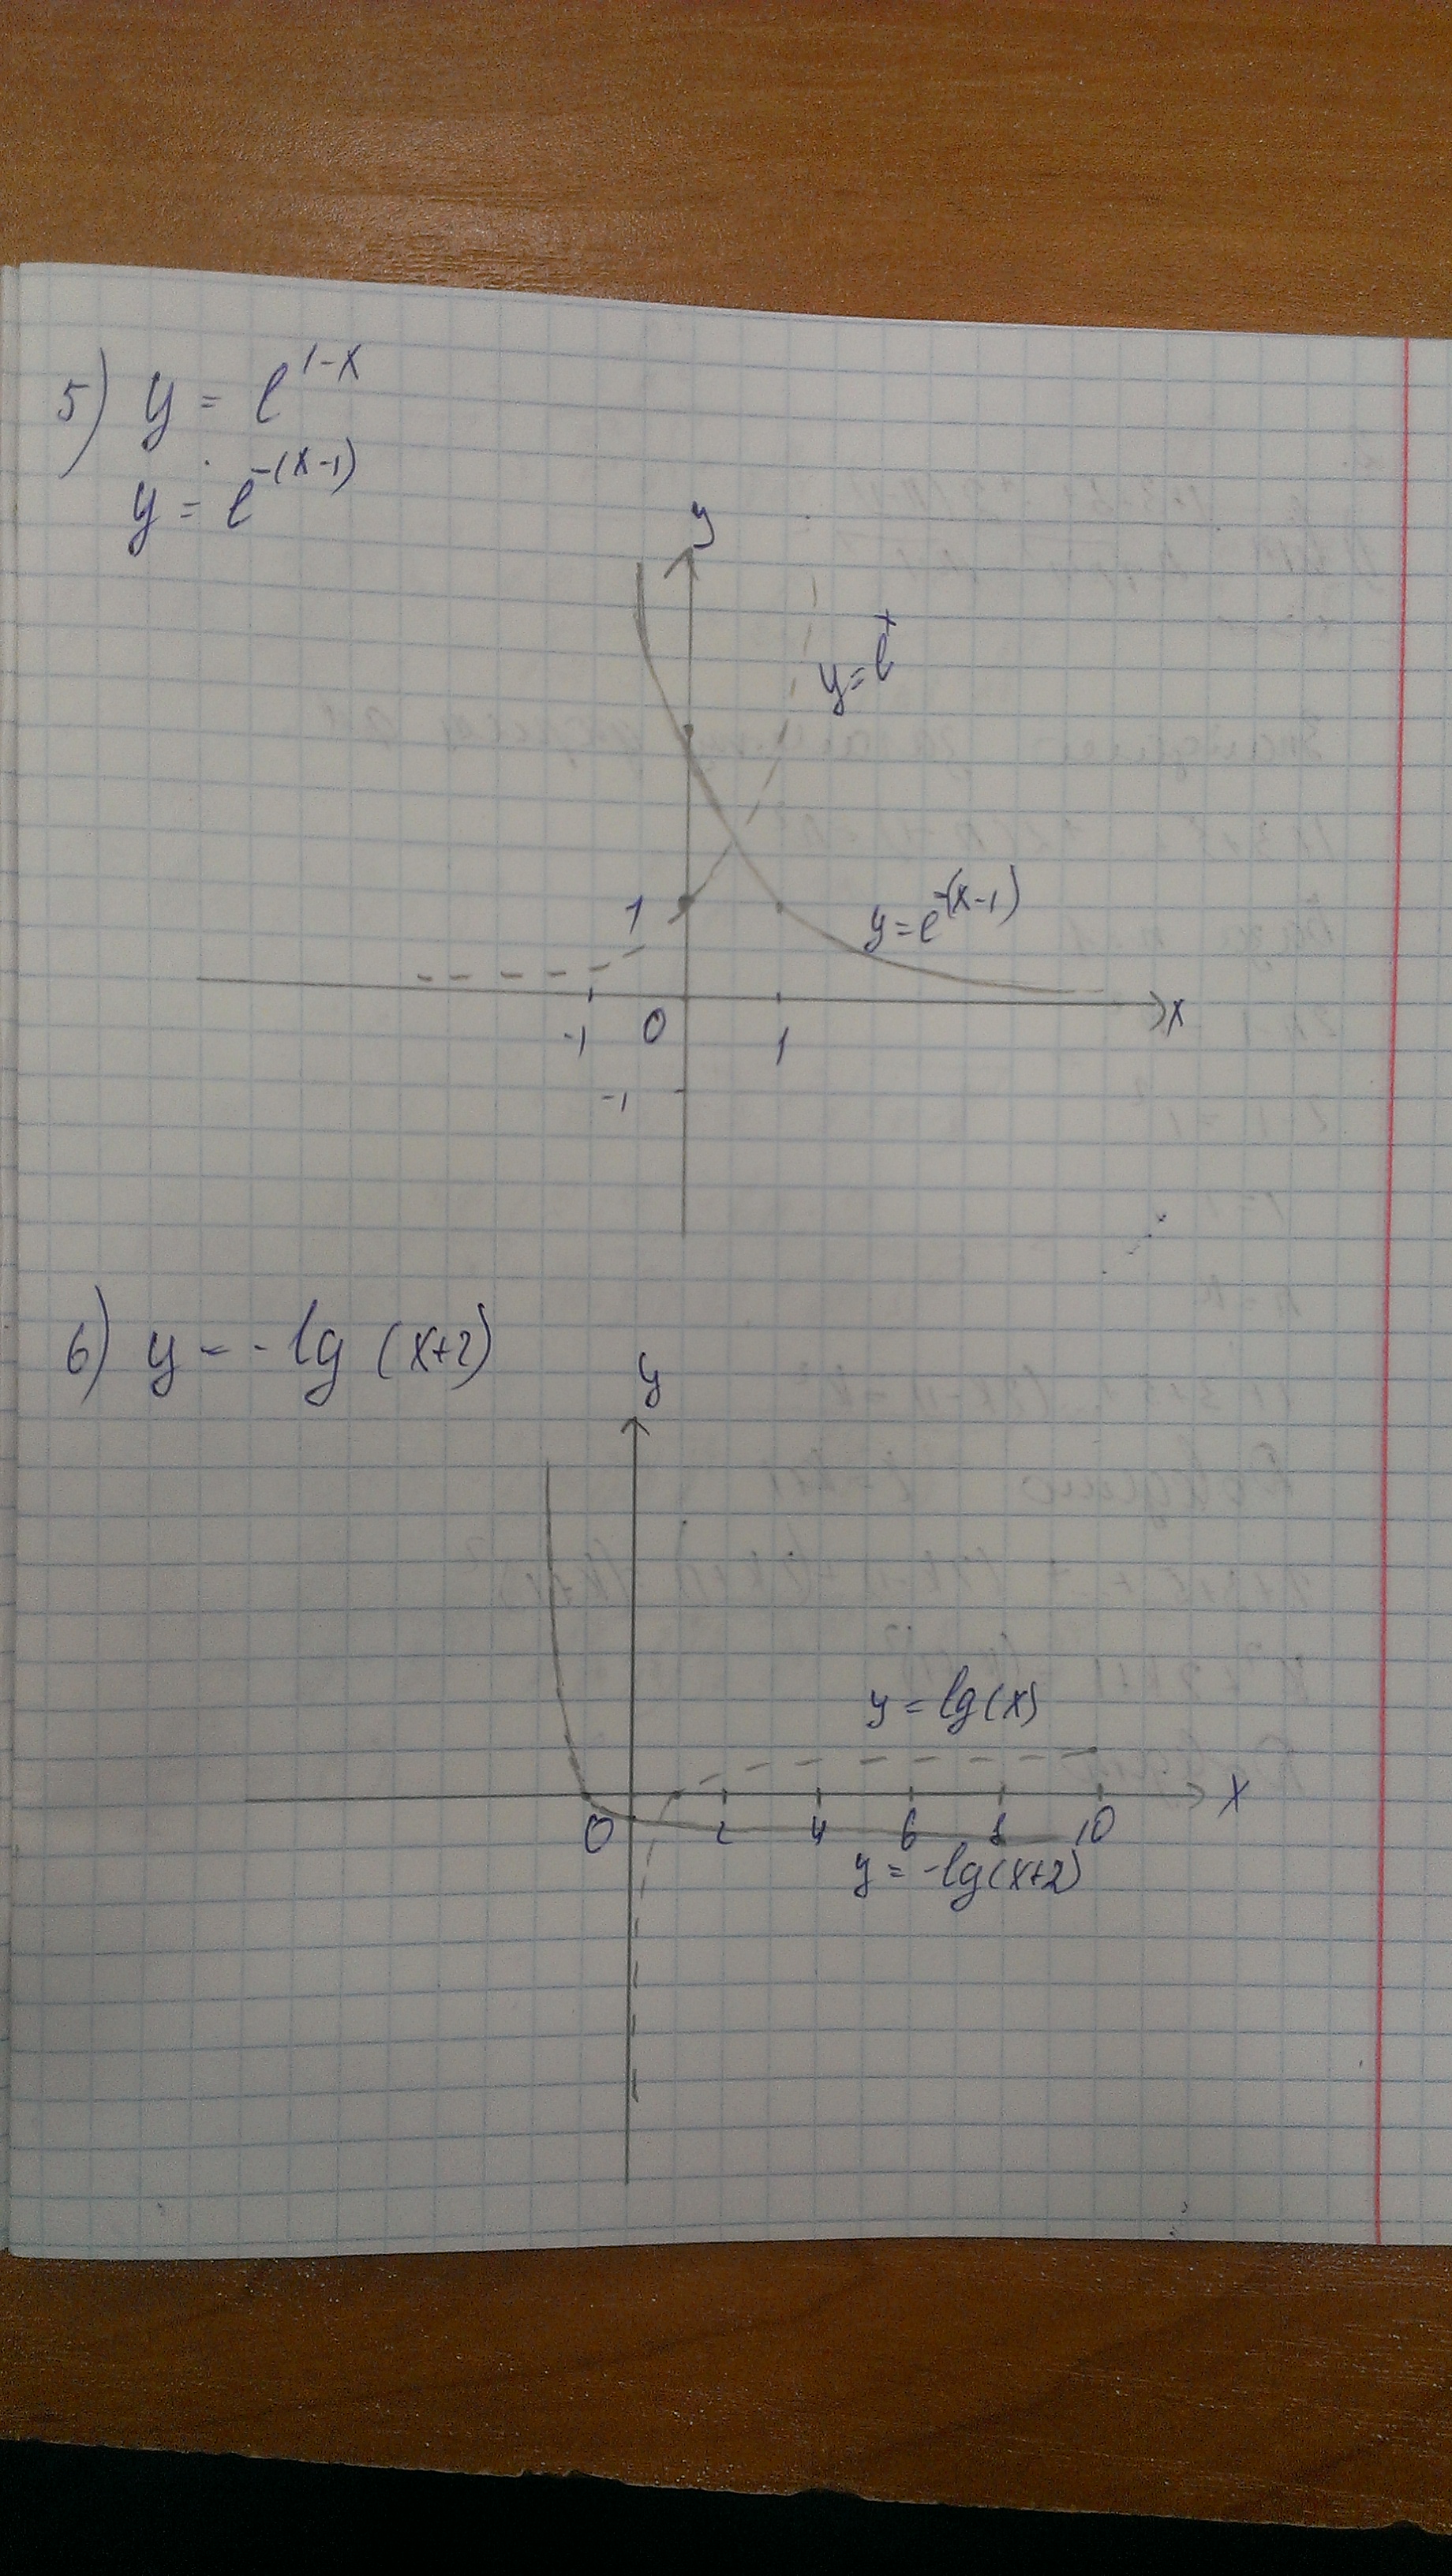 5) y = e^{1-x}
y = e^{-(x-1)}
y
y=e^x
1
y=e^{-(x-1)}
-1 0 1 x
-1
6) y = -lg (x+2)
y
y = lg(x)
0 2 4 6 8 10 x
y = -lg(x+2)